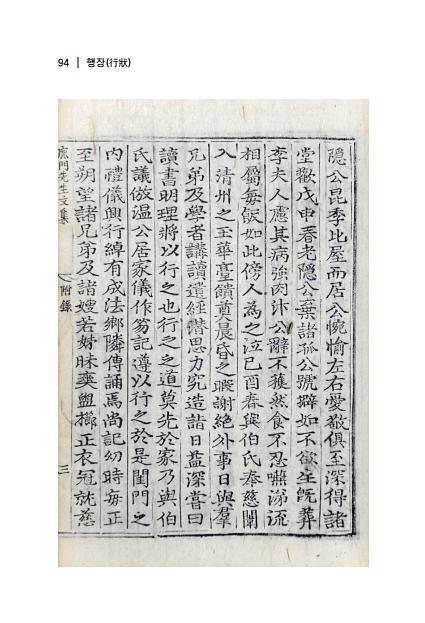 94 | 행장(行狀)
隱公昆季比屋而居公惋愉左右愛敬俱至深得諸
堂歡戊申春老隱公棄諸孤公號擗如不欲生旣葬
李夫人慮其病強肉汁公辭不獲然食不忍嚥涕流
相屬每飯如此傍人爲之泣己酉春與伯氏奉慈闈
入淸州之玉華臺饋奠晨昏之暇謝絶外事日與羣
兄弟及學者講讀遺經潛思力究造詣日益深嘗曰
讀書明理將以行之也行之之道莫先於家乃與伯
氏議倣溫公居家儀作笏記遵以行之於是閨門之
內禮儀興行綽有成法鄕隣傳誦焉尙記幼時每正
至朔望諸兄弟及諸嫂若姊昧爽盥櫛正衣冠就慈
鹿門先生文集
附錄
三